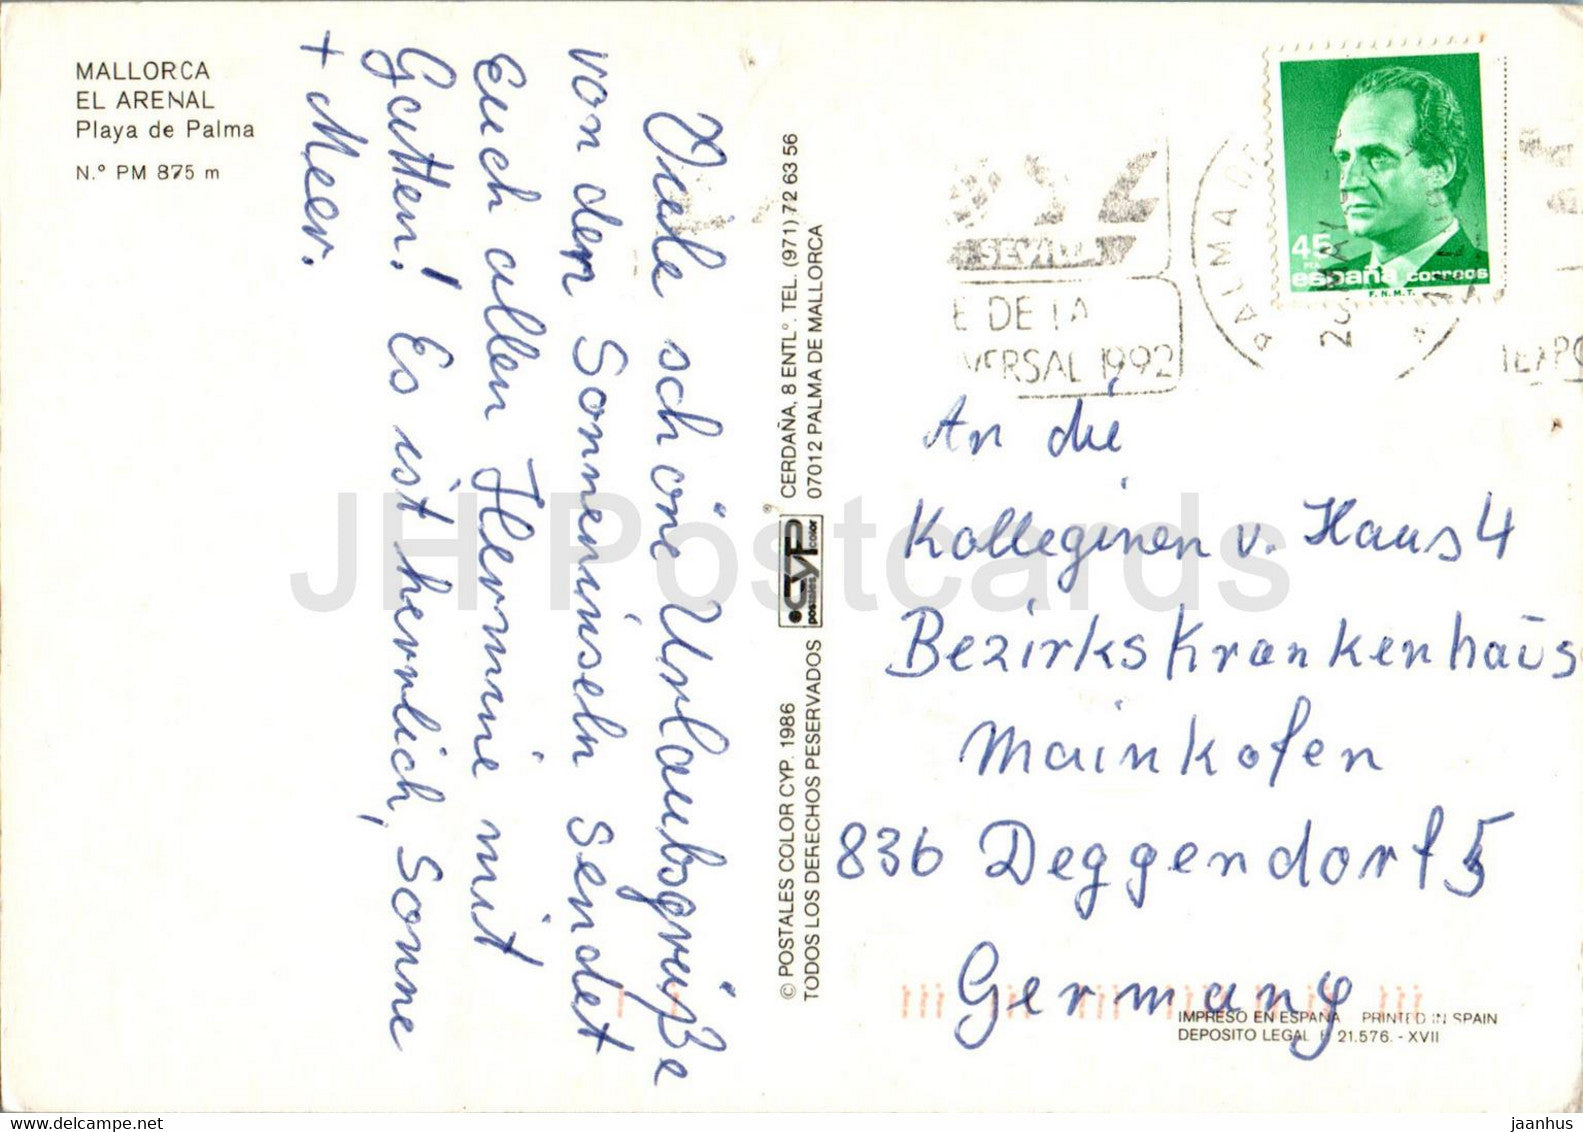 MALLORCA
EL ARENAL
Playa de Palma
N.º PM 875 m
Viele schöne Urlaubsgrüße
von den Sonneninseln sendet
Euch allen Hermine mit
Gatten! Es ist herrlich, Sonne
+ Meer.
© POSTALES COLOR CYP. 1986
TODOS LOS DERECHOS PESERVADOS
CYP
postales color
CERDAÑA, 8 ENTLº. TEL. (971) 72 63 56
07012 PALMA DE MALLORCA
45
PTA
españa correos
F.N.M.T.
SEVILLA
E DE LA
VERSAL 1992
PALMA D
MAY
An die
Kolleginen v. Haus 4
Bezirkskrankenhaüs
Mainkofen
836 Deggendorf 5
Germany
IMPRESO EN ESPAÑA - PRINTED IN SPAIN
DEPOSITO LEGAL B 21.576. - XVII
JH Postcards
www.delcampe.net
jaanhus